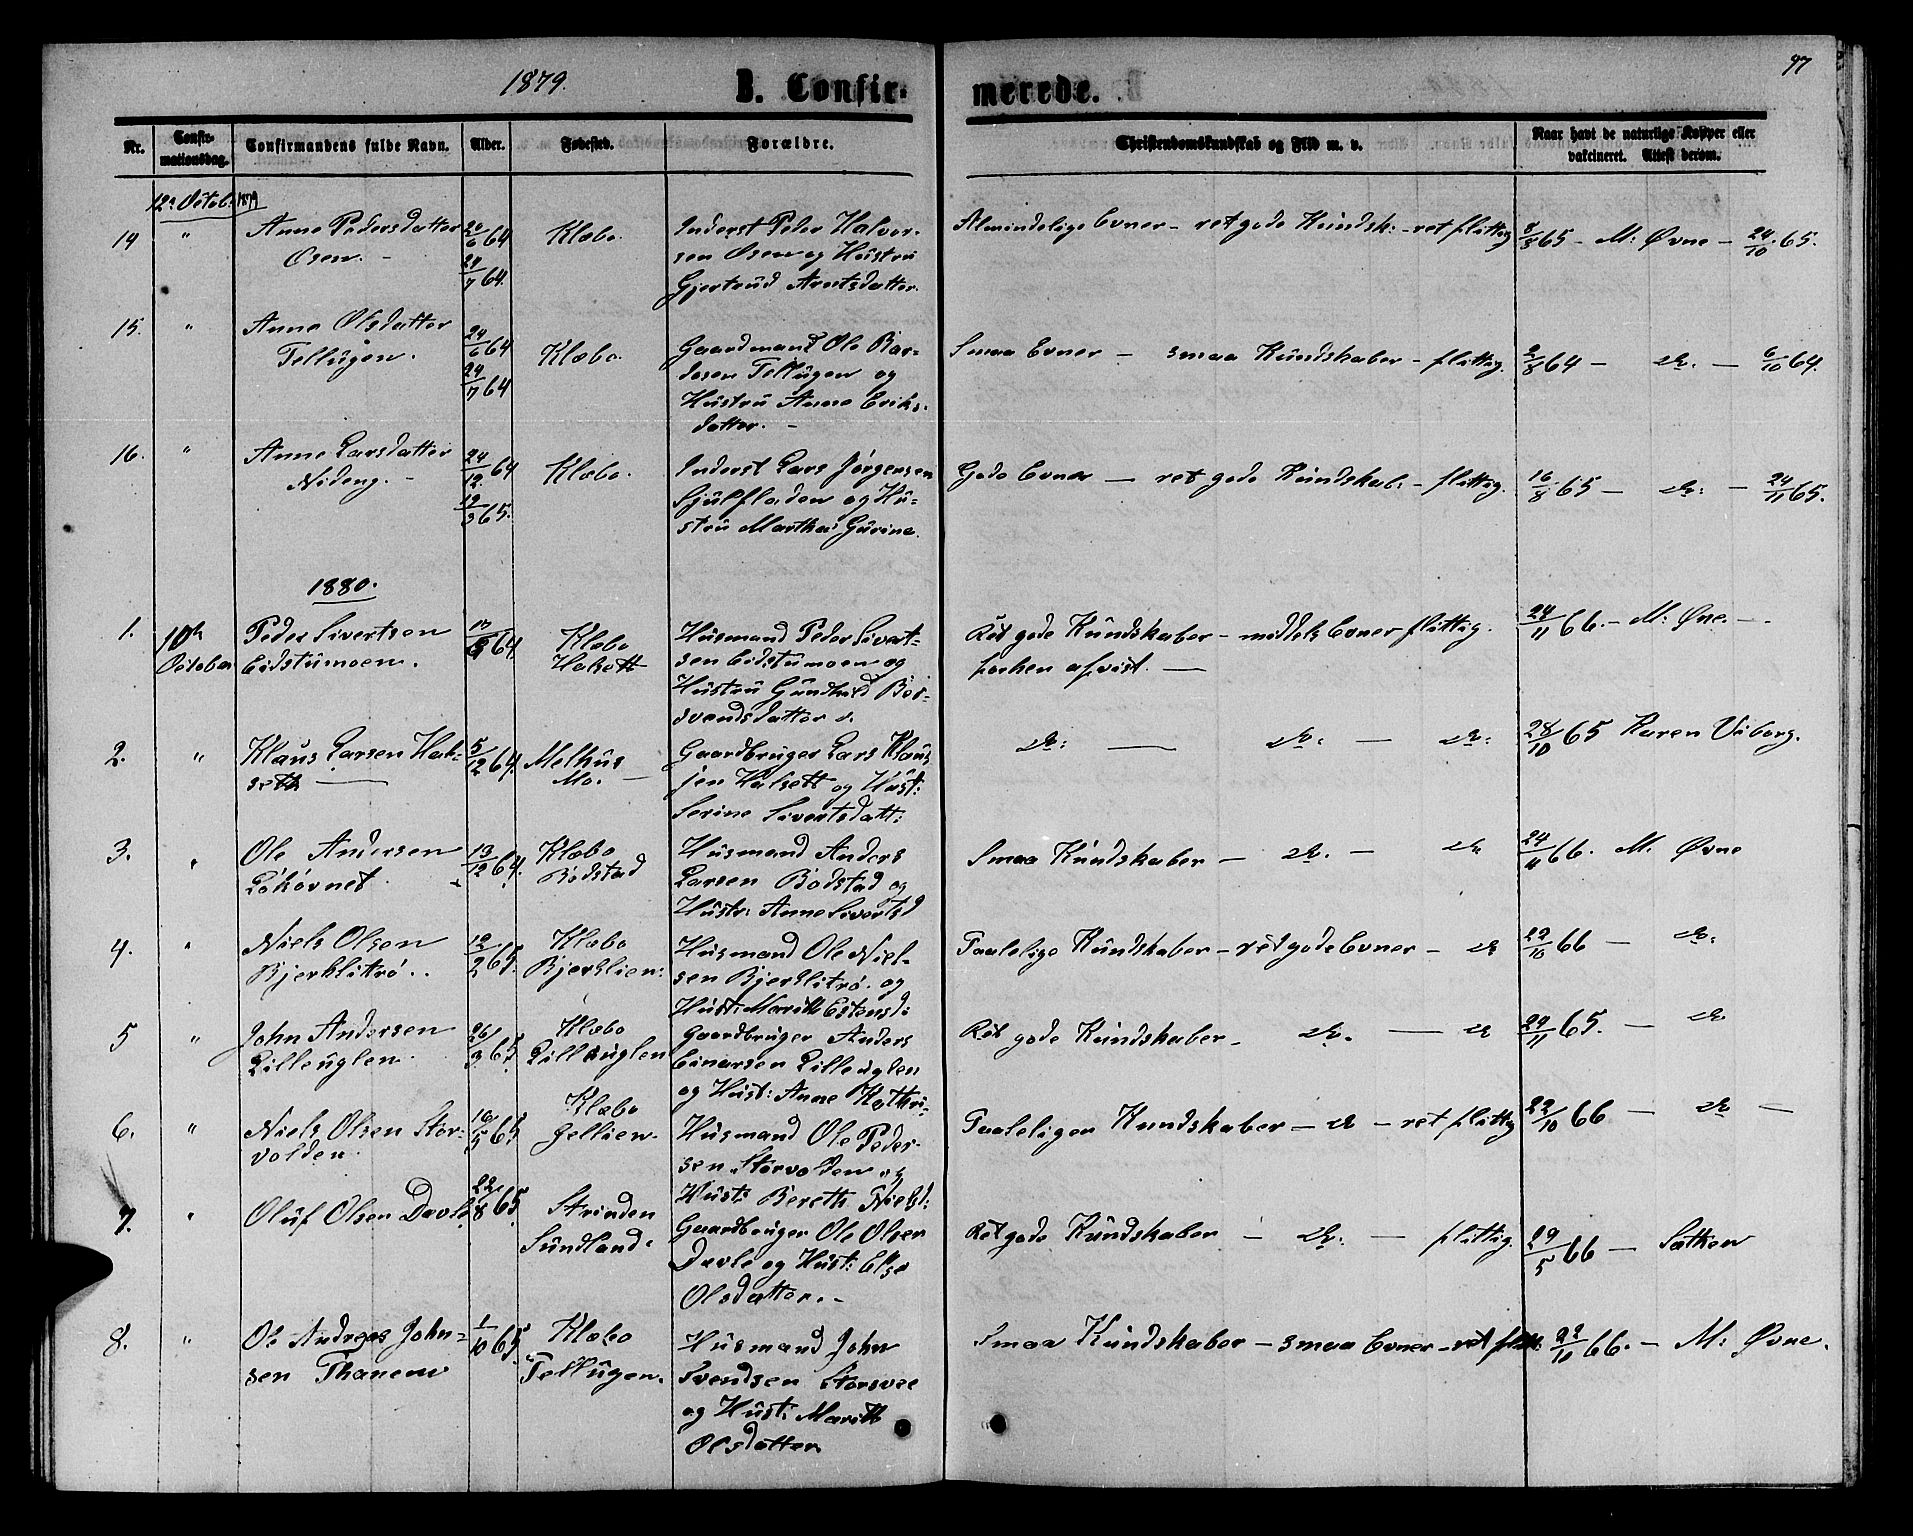 1879. B. Confirmerede. 97
Nr. Confirmationsdag. Confirmandens fulde Navn. Alder. Fødested. Forældre. Christendomskundskab og Flid m. v. Naar havt de naturlige Kopper eller vakcineret. Attest derom.
12te Octob. 1879
14 " Anne Pedersdatter Klæbo. Inderst Peder Halvor- Almindelige Evner - ret gode Kundsk: - ret flittig M: Øvne - 24/10 65.
Osen. - 24/7 64. sen Osen og Hustru
Gjertrud Arntsdatter.
15. " Anne Olsdatter 24/6 64 Klæbo. Gaardmand Ole Bar- Smaa Evner - smaa Kundskaber - flittig. 2/8 64 - do. - 6/10 64.
Tellugen. 24/7 64 dosen Tellugen og
Hustru Anne Eriks-
datter. -
16. " Anne Larsdatter 24/12 64 Klæbo. Inderst Lars Jørgensen Gode Evner - ret gode Kundskab: - flittig. 16/8 65 - do: - 24/11 65.
Nideng. - 12/3 65. Gjulfladen og Hu-
stru Martha Gurine.
1880.
1. 10de Peder Sivertsen Klæbo Husmand Peder Sivert- Ret gode Kundskaber - middels Evner - flittig. 24/11 66. - M: Øvne. -
October Eidstumoen. Halsett sen Eidstumoen og forhen afvist. -
Hustru Gunhild Bos-
svendsdatter.
2. " Klaus Larsen Hal- 5/12 64. Melhus Gaardbruger Lars Klaus- do: - do. - do: 28/10 65 Karen Viborg.
sett Mo. - sen Halsett og Hust:
Serine Sivertsdatt:
3. " Ole Andersen 13/12 64. Klæbo Husmand Anders Smaa Kundskaber - do. - do 24/11 66. M. Øvne
Løkøvnet. Bodstad Larsen Bodstad og
Hustr: Anne Sivertsd
4. " Niels Olsen 12/2 65. Klæbo Husmand Ole Niel- Taalelige Kundskaber - ret gode Evner - do 22/10 66 - do.
Bjerklitrø.. Bjerklien: sen Bjerklitrø. og
Hust: Maritt Estensd:
5 " John Andersen 26/3 65. Klæbo Gaardbruger Anders Ret gode Kundskaber - do. - do 24/11 65. - do
Lilleuglen. Lilleuglen Einarsen Lilleuglen
og Hust: Anne Kathri-
6. " Niels Olsen Stor- 16/5 65 Klæbo Husmand Ole Peder- Taaleliger Kundskaber - do - ret flittig 22/10 66 - do -
volden. Gellien. sen Storvolden og
Hust: Bereth Nielsd:
7. " Oluf Olsen Davle 22/8 65. Strinden Gaardbruger Ole Olsen Ret gode Kundskaber - do. - flittig. 29/5 66 - Sæther
Sundland. Davle og Hust: Else
Olsdatter. -
8. " Ole Andreas John- 1/10 65. Klæbo Husmand John Smaa Kundskaber - smaa Evner - ret flitt: 22/10 66. - M: Øvne.
sen Thanem Tellugen. Svendsen Storsvee
og Hust: Maritt
Olsdatter